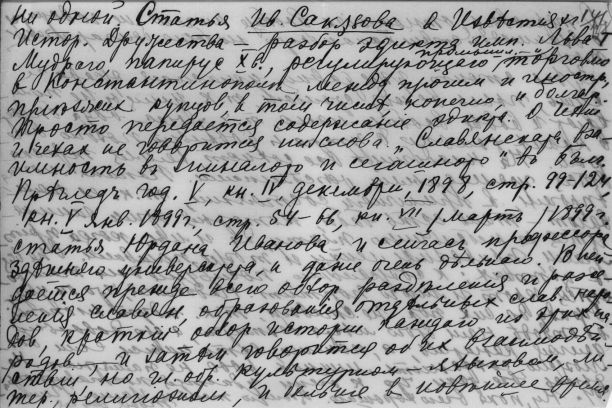 ни одной. Статья Ив. Сакъзова в Известиях
Истор. Дружества — разбор эдикта имп. Льва
Мудрого, папирус X в., регулирующего торговлю
в Константинополе, между прочим и иностр.
приезжих купцов, в том числе, конечно, и болгар.
Просто передается содержание эдикта. О
и чехах не говорится ни слова. „Славянската вза-
имность въ миналото и сегашното" въ Бълг.
Прѣгледъ год. V, кн. IV, декември, 1898, стр. 99-124
кн. V янв. 1899 г., стр. 54-66, кн. VII /мартъ/ 1899 г.
статья Йордана Иванова, и сейчас профессора
здешнего университета, и даже очень дельного. В ней
дается прежде всего обзор разделения и рассе-
ления славян, образования отдельных слав. наро-
дов, краткий обзор истории каждого из этих на-
родов — и затем говорится об их взаимодей-
ствии, но гл. обр. культурном — языковом, ли-
тер., религиозном, и больше в новейшее время.